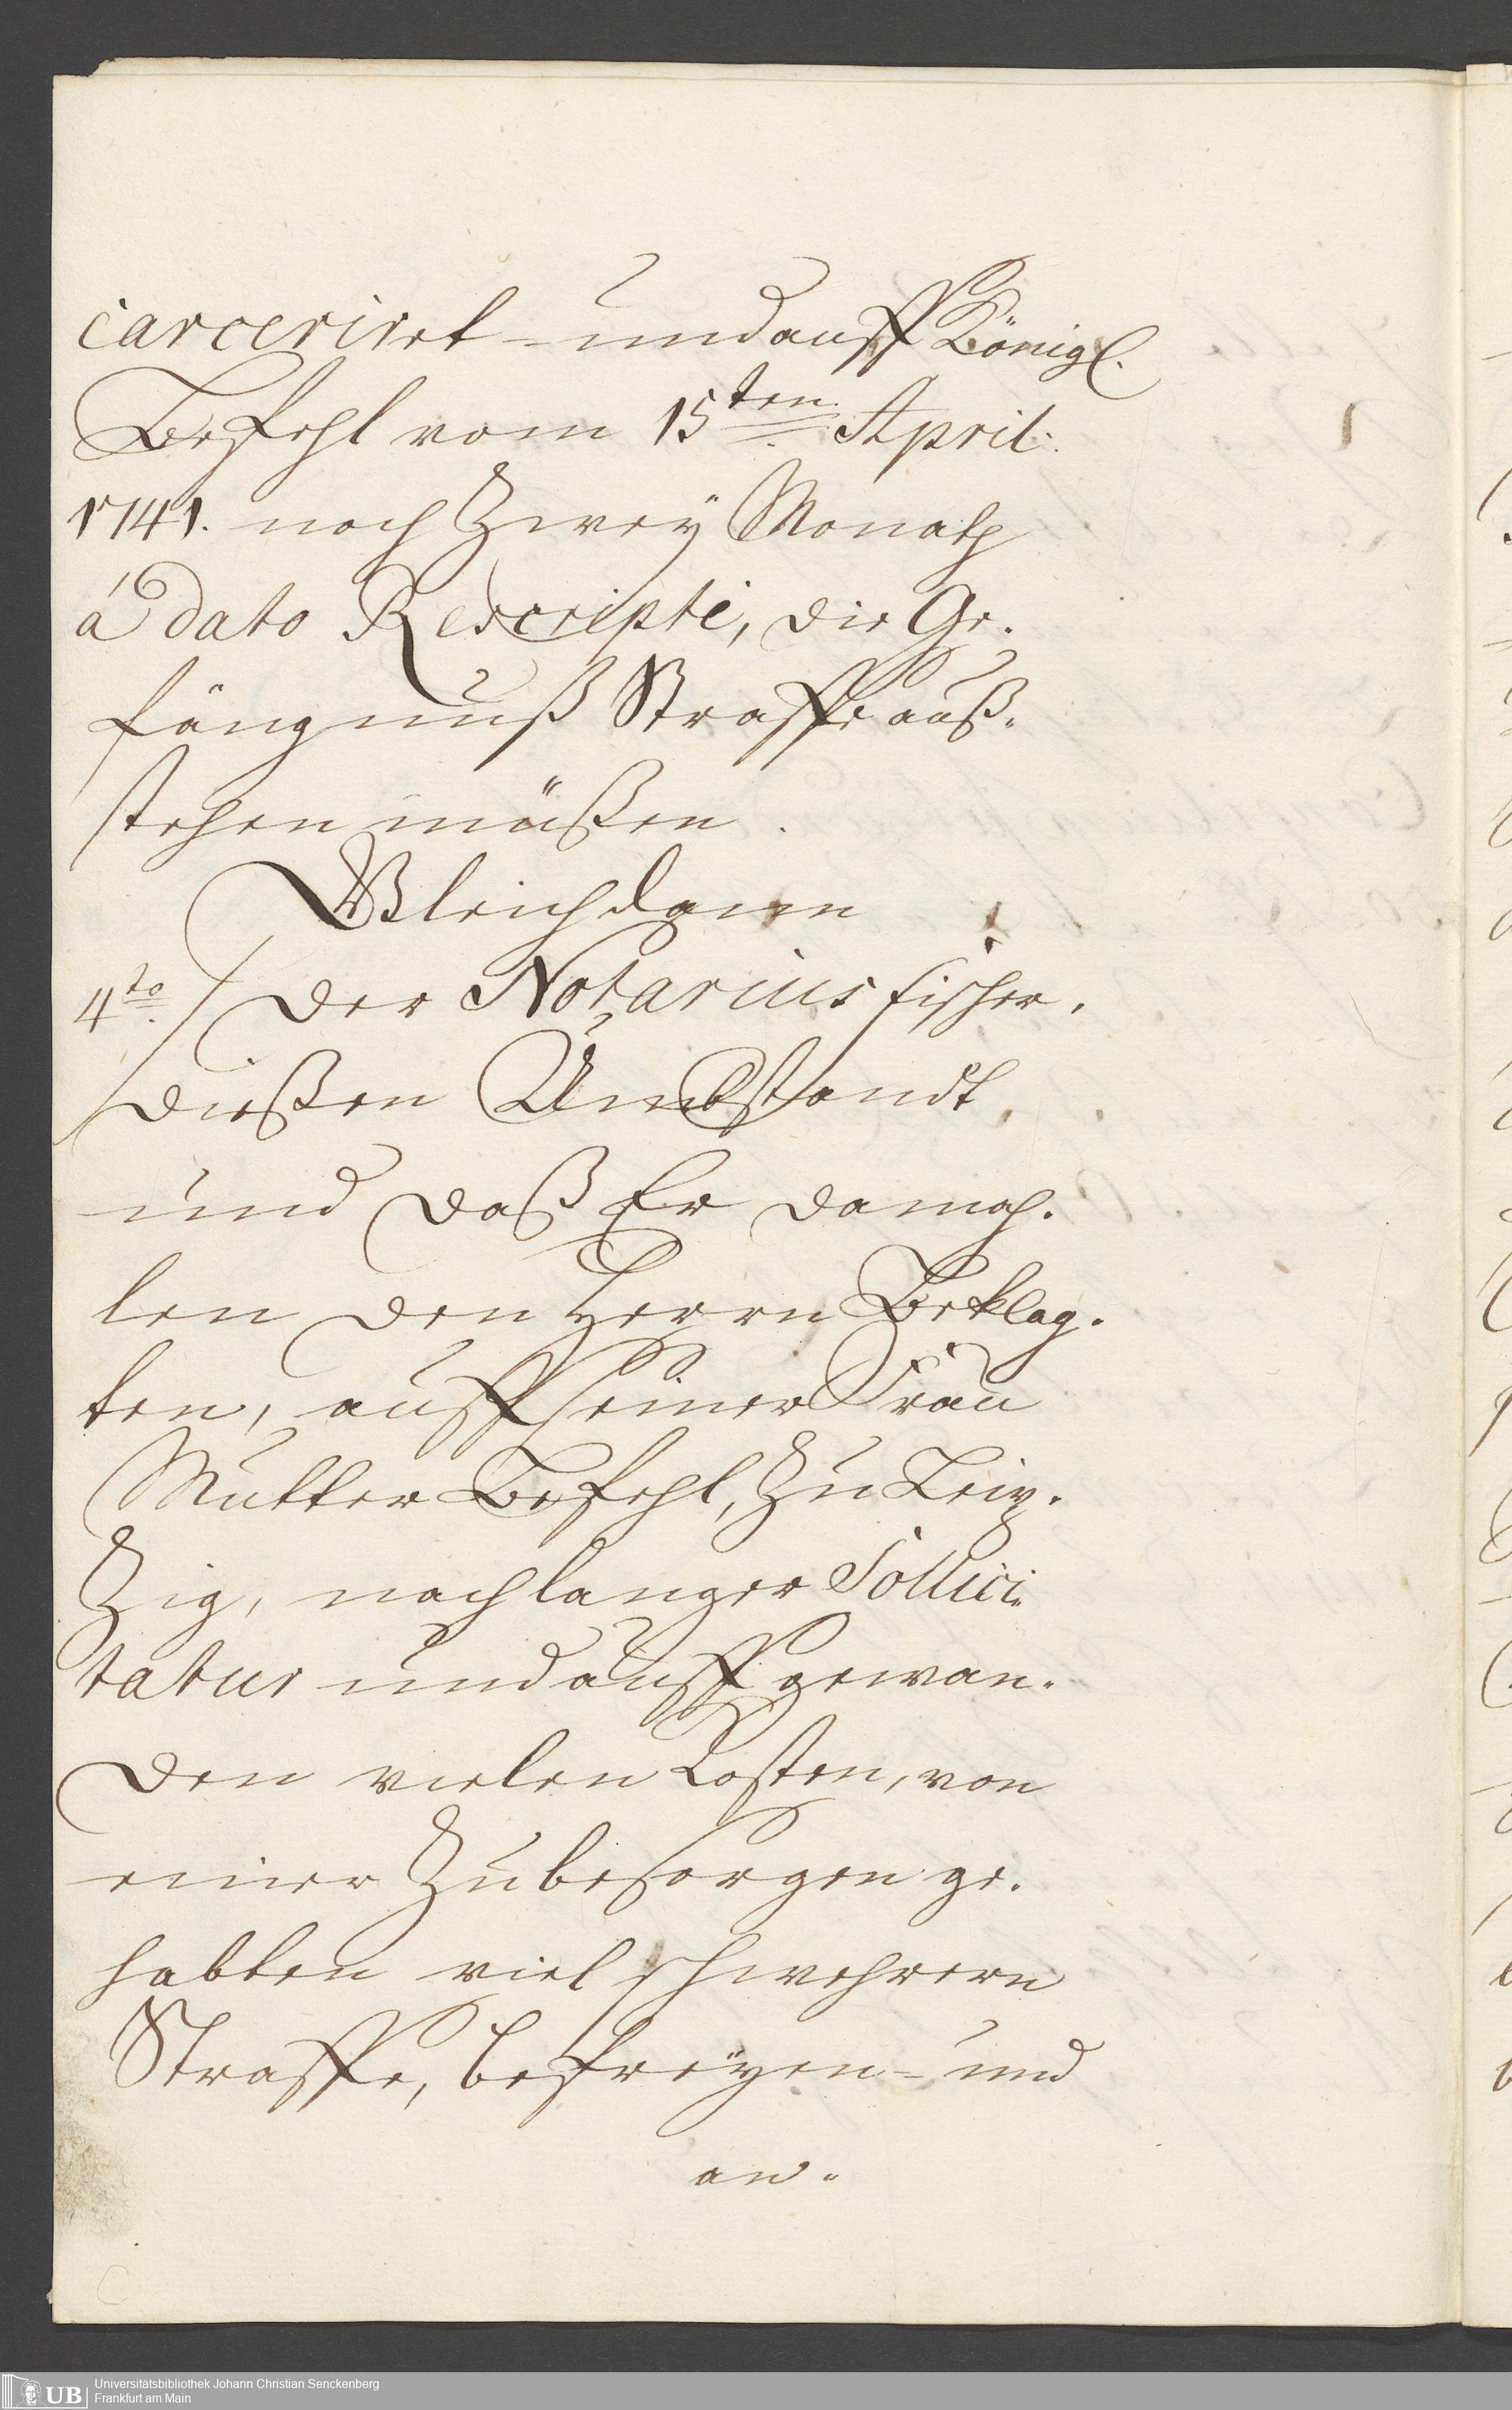 carceriret - und auff Königl.
Befehl vom 15ten April:
1741. noch Zwey Monath
á dato Rescripti, die Ge-
fängnuß Straffe auß-
stehen müßen.
Gleichdann
4to./ der Notarius hier,
dießen Umbstandt,
und daß Er damah-
len den Herrn Beklag-
ten, auff seiner Frau
Mutter Befehl, Zu Leip-
Zig, nach langer Sollici-
tatur und auffgewan-
den vielen Kosten, von
einer Zubesorgen ge-
habten viel schwehrern
Straffe, befreyen - und
an-
Universitätsbibliothek Johann Christian Senckenberg
Frankfurt am Main
UB